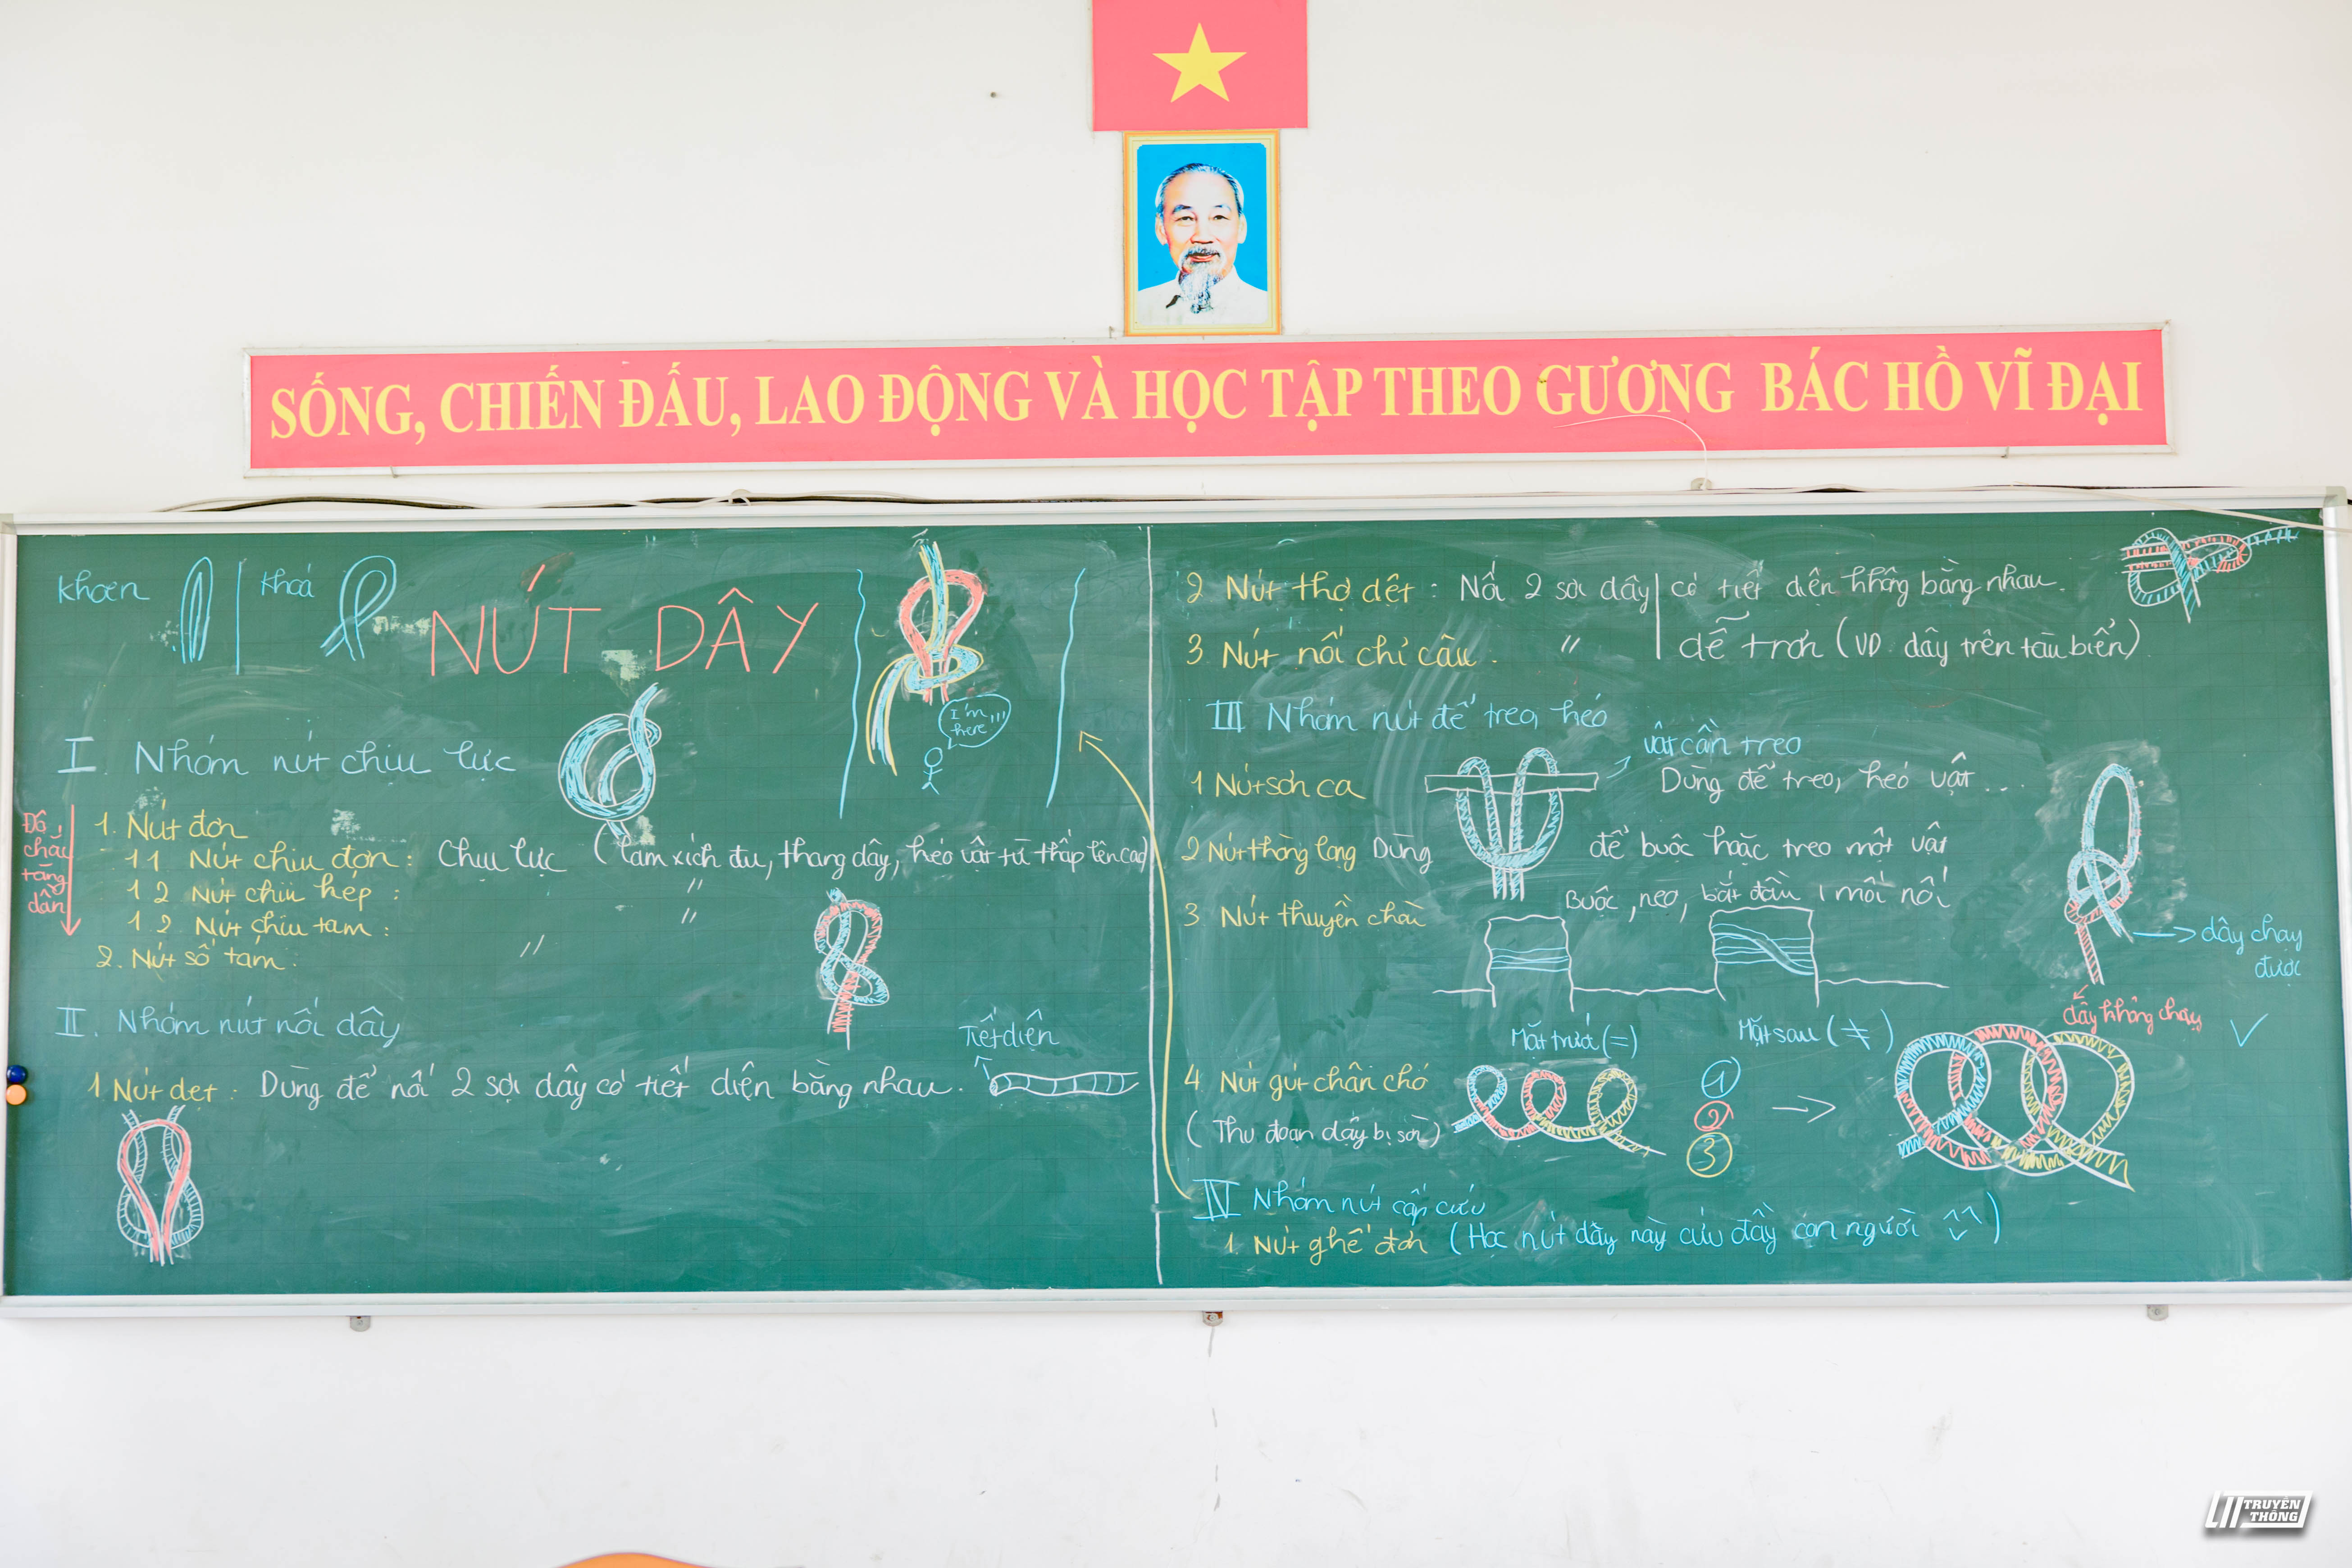 SỐNG, CHIẾN ĐẤU, LAO ĐỘNG VÀ HỌC TẬP THEO GƯƠNG BÁC HỒ VĨ ĐẠI
khoen
khoá
NÚT DÂY
I'm here !!!
I. Nhóm nút chịu lực
Độ chắc tăng dần
1. Nút đơn
1.1 Nút chịu đơn : Chịu lực (làm xích đu, thang dây, kéo vật từ thấp lên cao)
1.2 Nút chịu kép : "
1.2 Nút chịu tam : "
2. Nút số tám : "
II. Nhóm nút nối dây
Tiết diện
1. Nút dẹt : Dùng để nối 2 sợi dây có tiết diện bằng nhau.
2 Nút thợ dệt : Nối 2 sợi dây có tiết diện không bằng nhau.
3. Nút nối chỉ câu . " dễ trơn (VD. dây trên tàu biển)
III Nhóm nút để treo, kéo
vật cần treo
1 Nút sơn ca Dùng để treo, kéo vật ...
2 Nút thòng lọng Dùng để buộc hoặc treo một vật
3. Nút thuyền chài Buộc, neo, bắt đầu 1 mối nối
dây chạy được
dây không chạy
Mặt trước (=)
Mặt sau (≠)
4. Nút gút chân chó
(Thu đoạn dây bị sờn)
1
2
3
IV Nhóm nút cấp cứu
1. Nút ghế đơn (Học nút dây này cứu đầy con người ^^)
TRUYỀN THÔNG